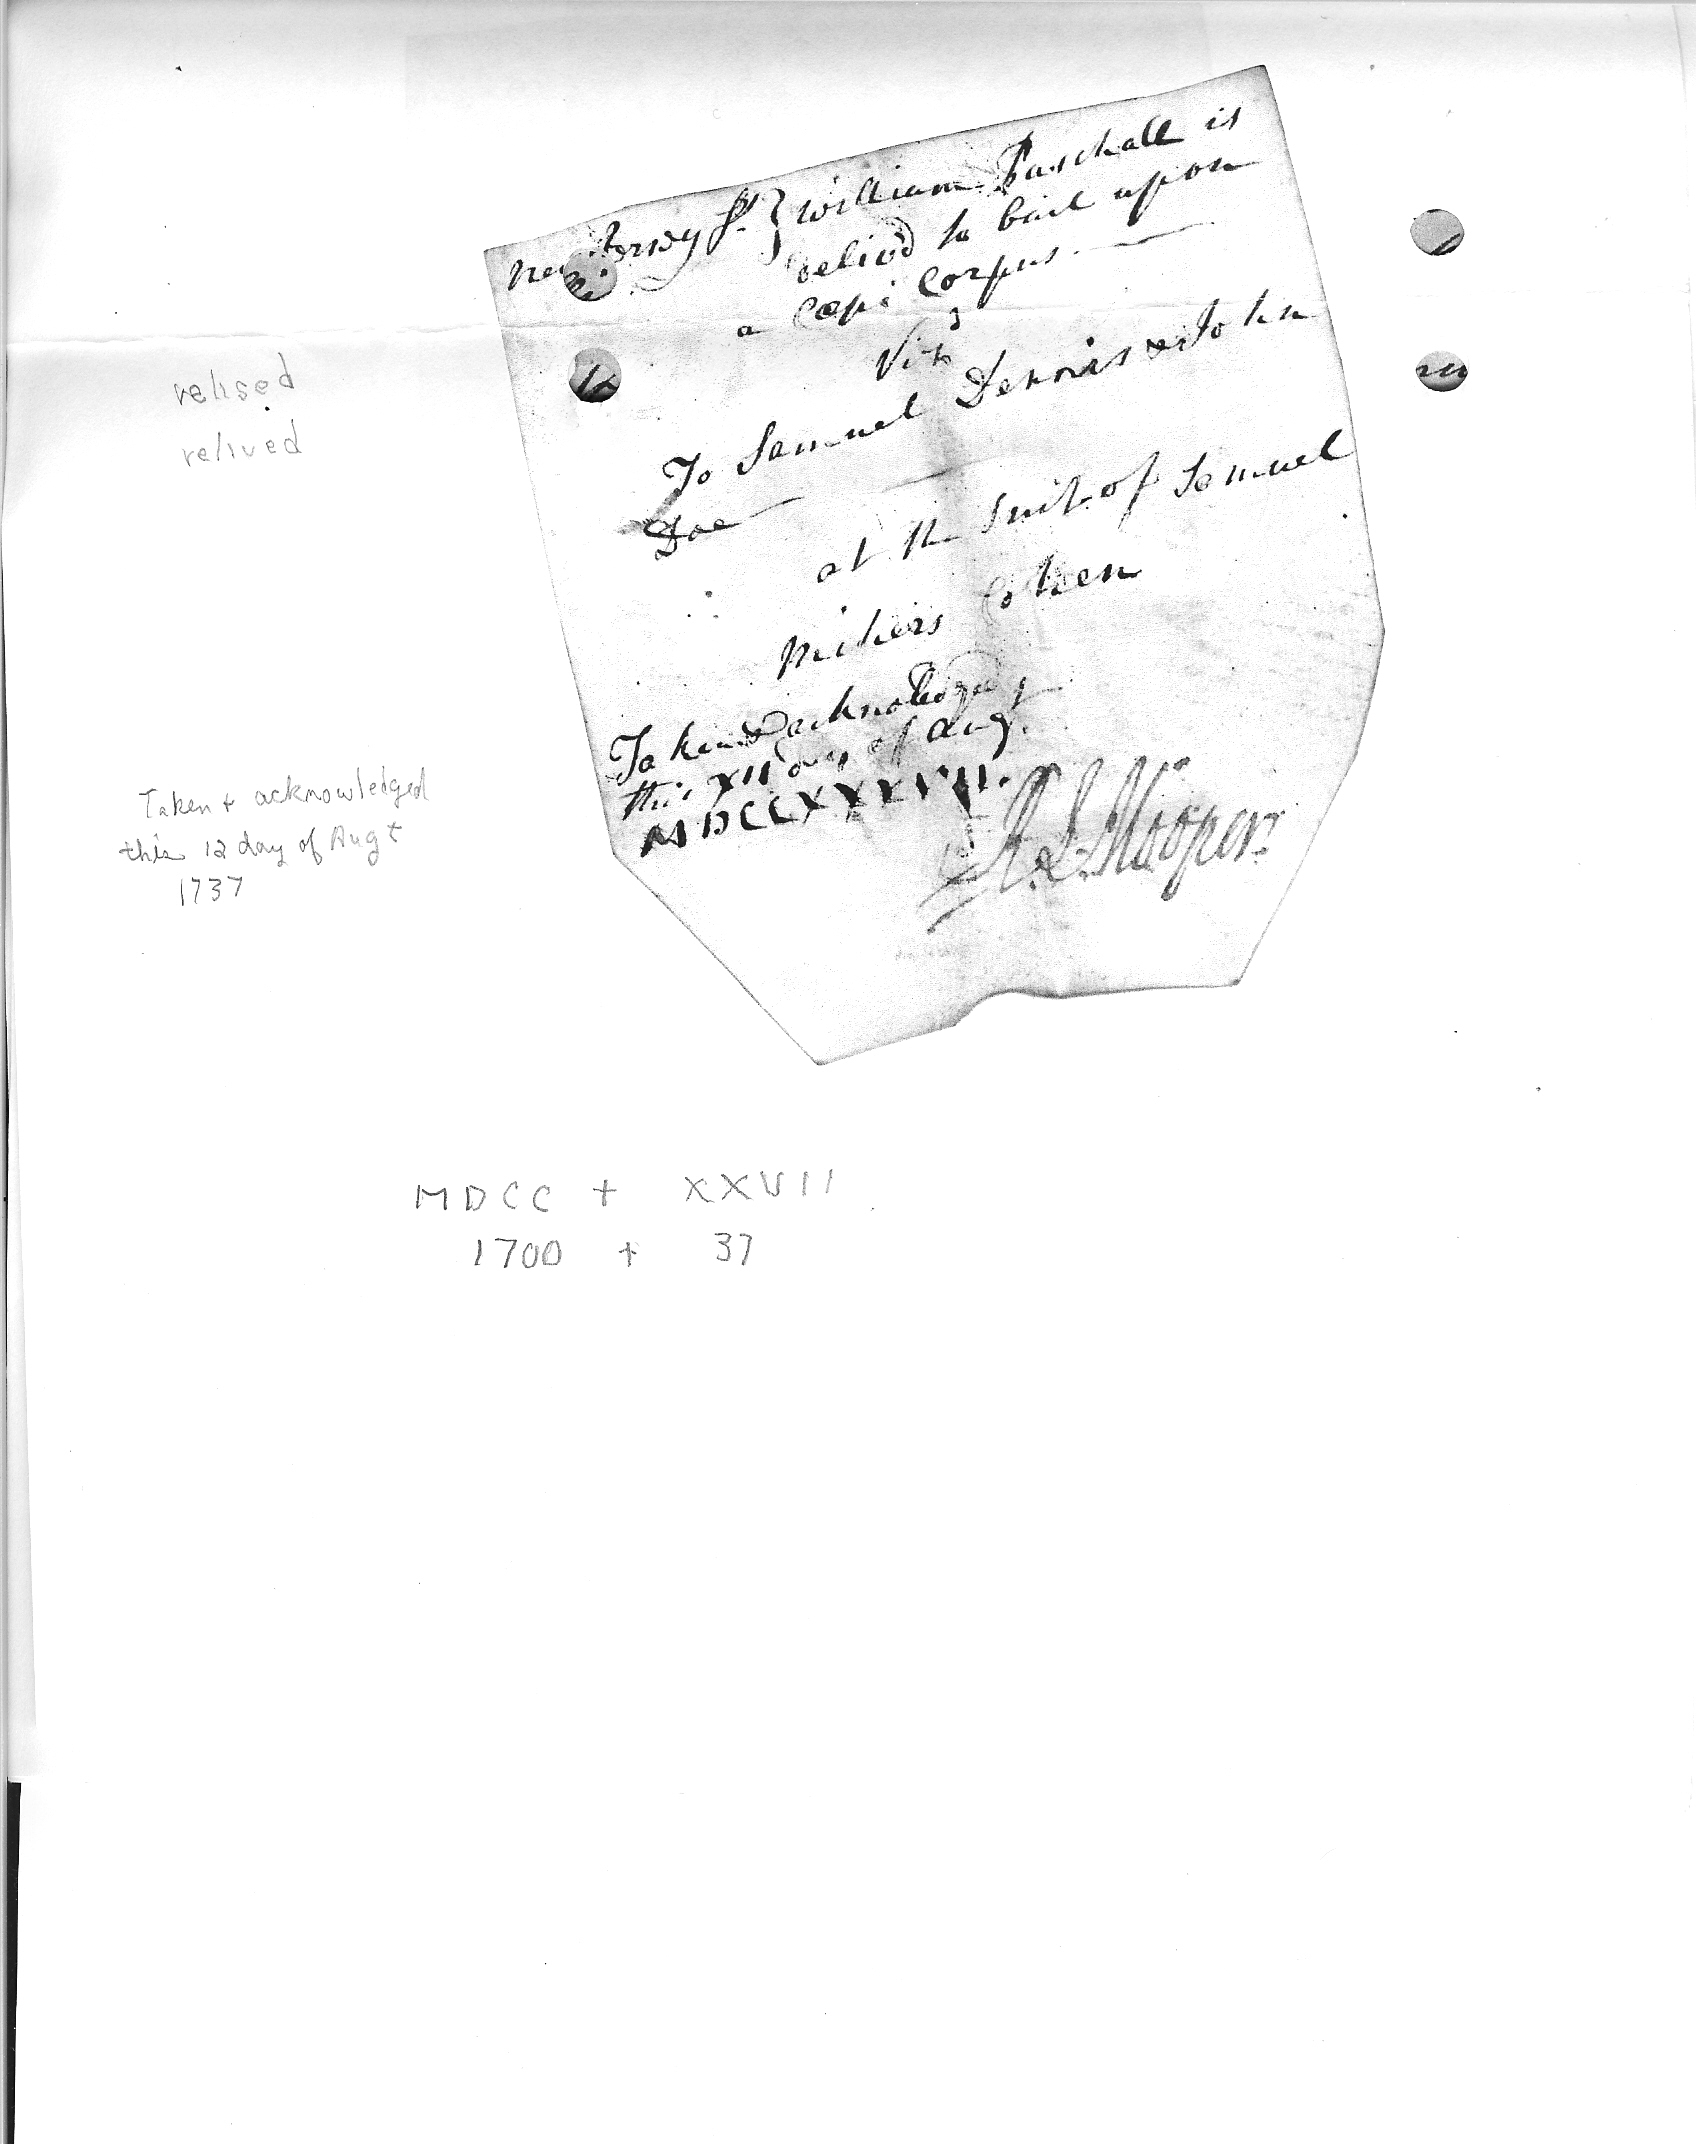 New Jersey ss. } William Paschall is
delivd to bail upon
a Cepi Corpus
Vizt
To Samuel Dennis & John
Doe
at the Suit of Samuel
Mickers Cohen
Taken & acknowledged
this XII day of Augt
MDCCXXXVII.
R. L. Hooper
relised
relived
Taken & acknowledged
this 12 day of Augt
1737
MDCC + XXVII
1700 + 37